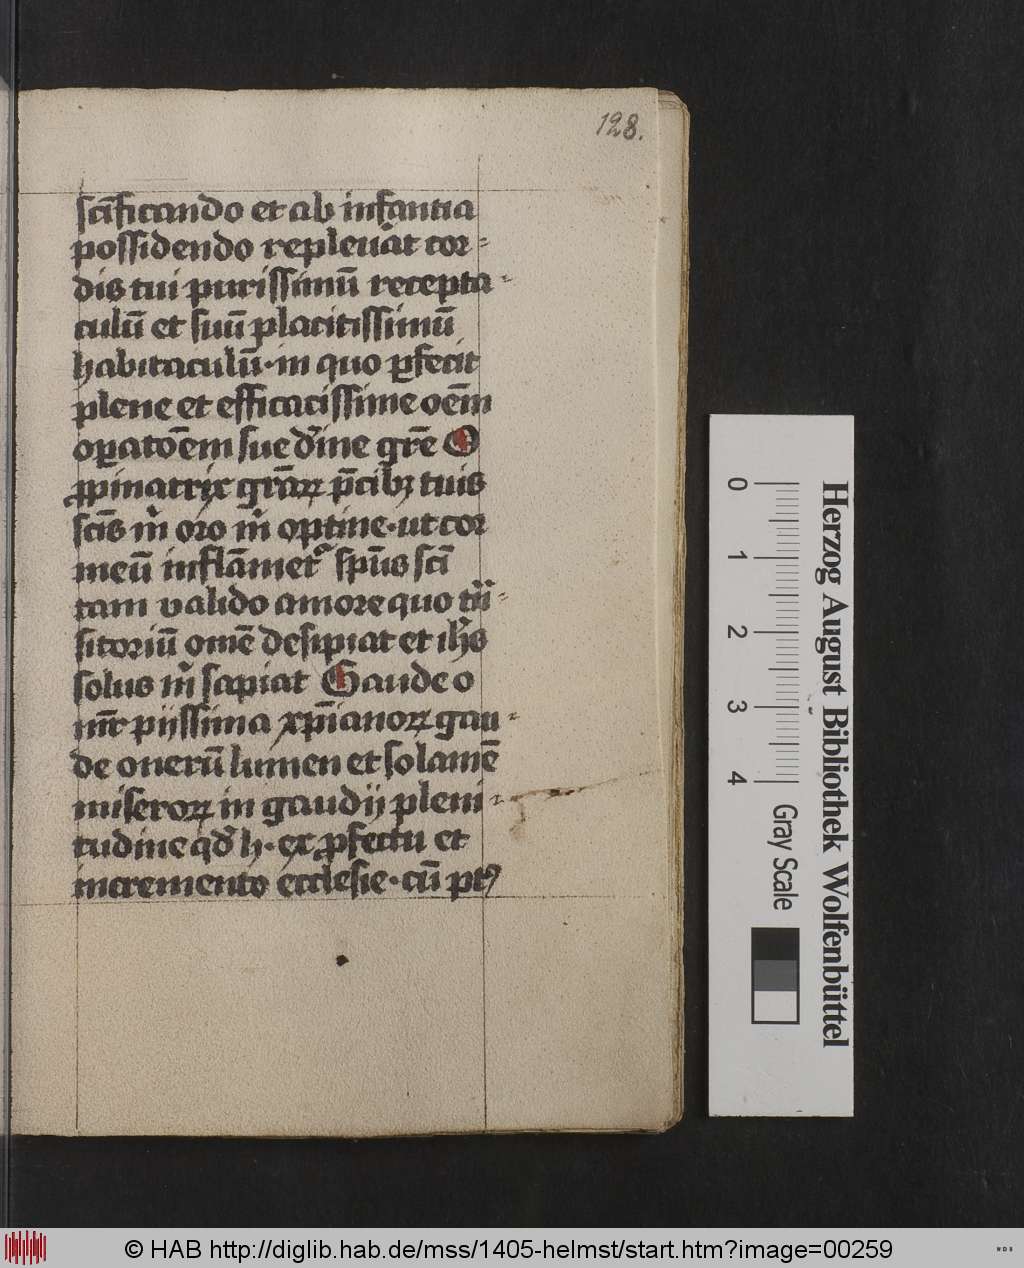 128.
scīficando et ab infantia
possidendo repleuāt cor-
dis tui purissimū recepta-
culū et suū placitissimū
habitaculū·in quo ꝑfecit
plene et efficacissime oēm
oꝑatoēm sue dīne grē O
ꝓpinatrix grāꝝ p̄cibꝫ tuis
scīs m̄ oro m̄ optine·ut cor
meū inflāmet᷑ sp̄us scī
tam valido amore quo tn̄-
sitoriū omē desipiat et ih̄s
solus m̄ sapiat Gaude o
mr̄ pijssima xp̄ianoꝝ gau-
de onerū lumen et solamē
miseroꝝ in gaudij pleni-
tudine qd̄ h·ex ꝓfectu et
incremento ecclesie·cū ptꝰ
Herzog August Bibliothek Wolfenbüttel
0 1 2 3 4 Gray Scale
© HAB http://diglib.hab.de/mss/1405-helmst/start.htm?image=00259